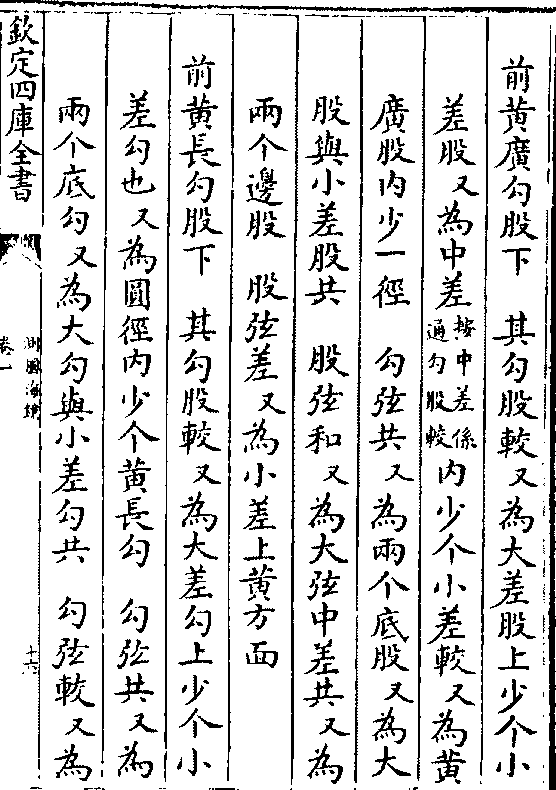 前黄廣勾股下　其勾股較又為大差股上少个小
差股又為中差按中差係通勾股較内少个小差較又為黄
廣股内少一徑　勾弦共又為兩个底股又為大
股與小差股共　股弦和又為大弦中差共又為
兩个邊股　股弦差又為小差上黄方面
前黄長勾股下　其勾股較又為大差勾上少个小
差勾也又為圓徑内少个黄長勾　勾弦共又為
兩个底勾又為大勾與小差勾共　勾弦較又為
欽定四庫全書
測圓海鏡
卷一
十六